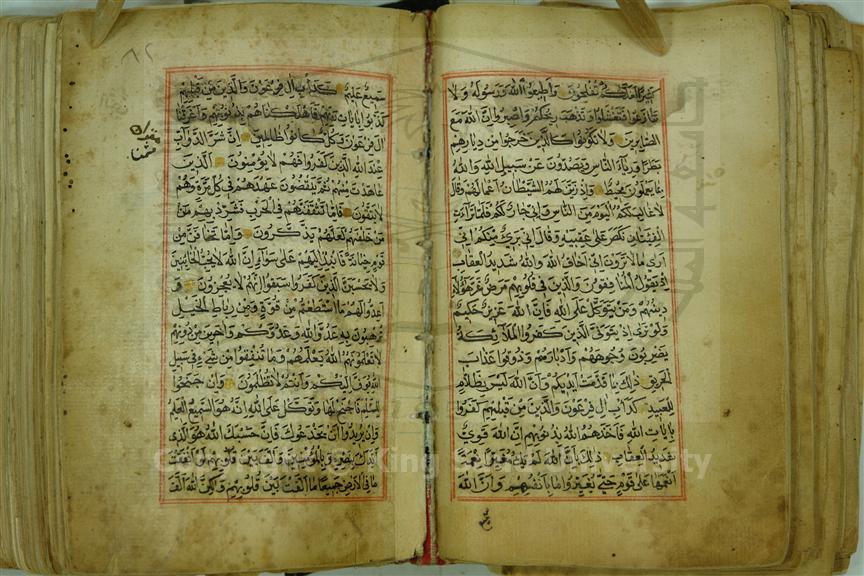 كثيرا لعلكم تفلحون واطيعوا الله ورسوله ولا
تنازعوا فتفشلوا وتذهب ريحكم واصبروا ان الله مع
الصابرين ولا تكونوا كالذين خرجوا من ديارهم
بطرا ورياء الناس ويصدون عن سبيل الله والله
بما يعملون محيط واذ زين لهم الشيطان اعمالهم وقال
لا غالب لكم اليوم من الناس واني جار لكم فلما تراءت
الفئتان نكص على عقبيه وقال اني بريء منكم اني
ارى ما لا ترون اني اخاف الله والله شديد العقاب
اذ يقول المنافقون والذين في قلوبهم مرض غر هؤلاء
دينهم ومن يتوكل على الله فان الله عزيز حكيم
ولو ترى اذ يتوفى الذين كفروا الملائكة
يضربون وجوههم وادبارهم وذوقوا عذاب
الحريق ذلك بما قدمت ايديكم وان الله ليس بظلام
للعبيد كداب ال فرعون والذين من قبلهم كفروا
بايات الله فاخذهم الله بذنوبهم ان الله قوي
شديد العقاب ذلك بان الله لم يك مغيرا نعمة
انعمها على قوم حتى يغيروا ما بانفسهم وان الله
سميع
سميع عليم كداب ال فرعون والذين من قبلهم
كذبوا بايات ربهم فاهلكناهم بذنوبهم واغرقنا
ال فرعون وكل كانوا ظالمين ان شر الدواب
عند الله الذين كفروا فهم لا يؤمنون الذين
عاهدت منهم ثم ينقضون عهدهم في كل مرة وهم
لا يتقون فاما تثقفنهم في الحرب فشرد بهم من
من خلفهم لعلهم يذكرون واما تخافن من
قوم خيانة فانبذ اليهم على سواء ان الله لا يحب الخائنين
ولا تحسبن الذين كفروا سبقوا انهم لا يعجزون و
اعدوا لهم ما استطعتم من قوة ومن رباط الخيل
ترهبون به عدو الله وعدوكم واخرين من دونهم
لا تعلمونهم الله يعلمهم وما تنفقوا من شيء في سبيل
الله يوف اليكم وانتم لا تظلمون وان جنحوا
للسلم فاجنح لها وتوكل على الله انه هو السميع العليم
وان يريدوا ان يخدعوك فان حسبك الله هو الذي
ايدك بنصره وبالمؤمنين والف بين قلوبهم لو انفقت
ما في الارض جميعا ما الفت بين قلوبهم ولكن الله الف
King Saud University